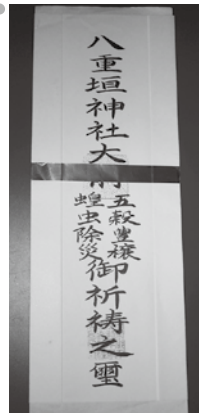 八重垣神社大前
五穀豊穣
蝗虫除災
御祈祷之璽